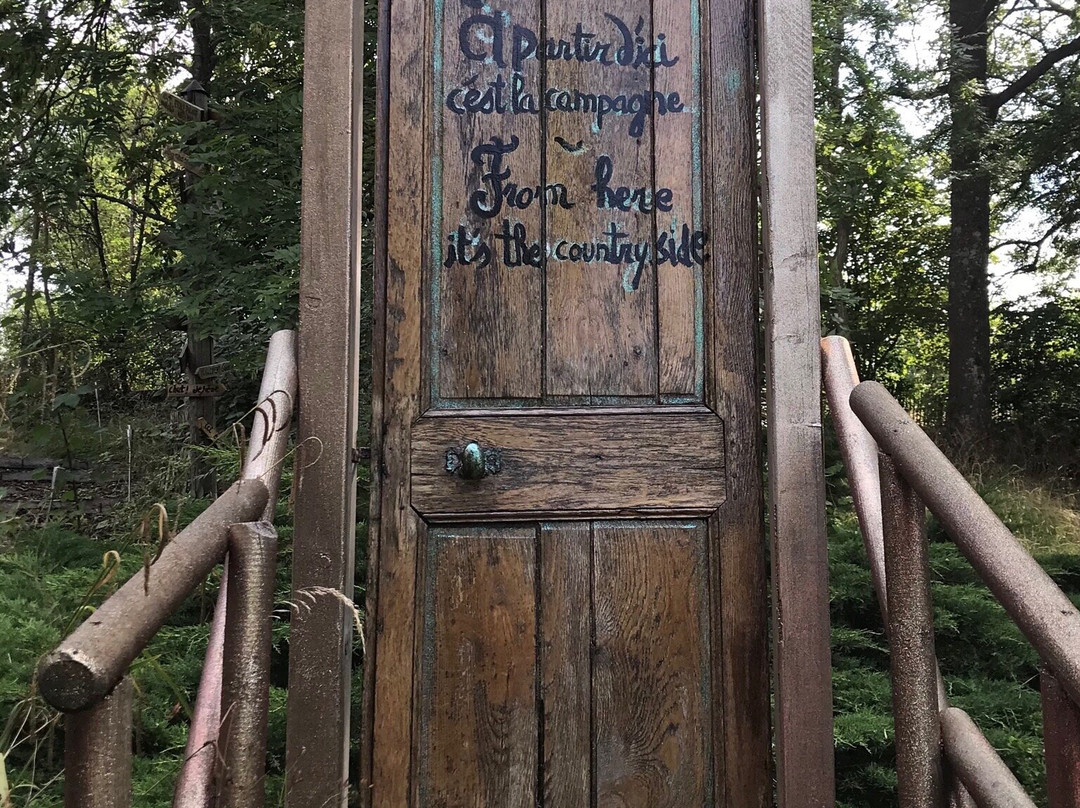 A partir d'ici
c'est la campagne
From here
it's the country side